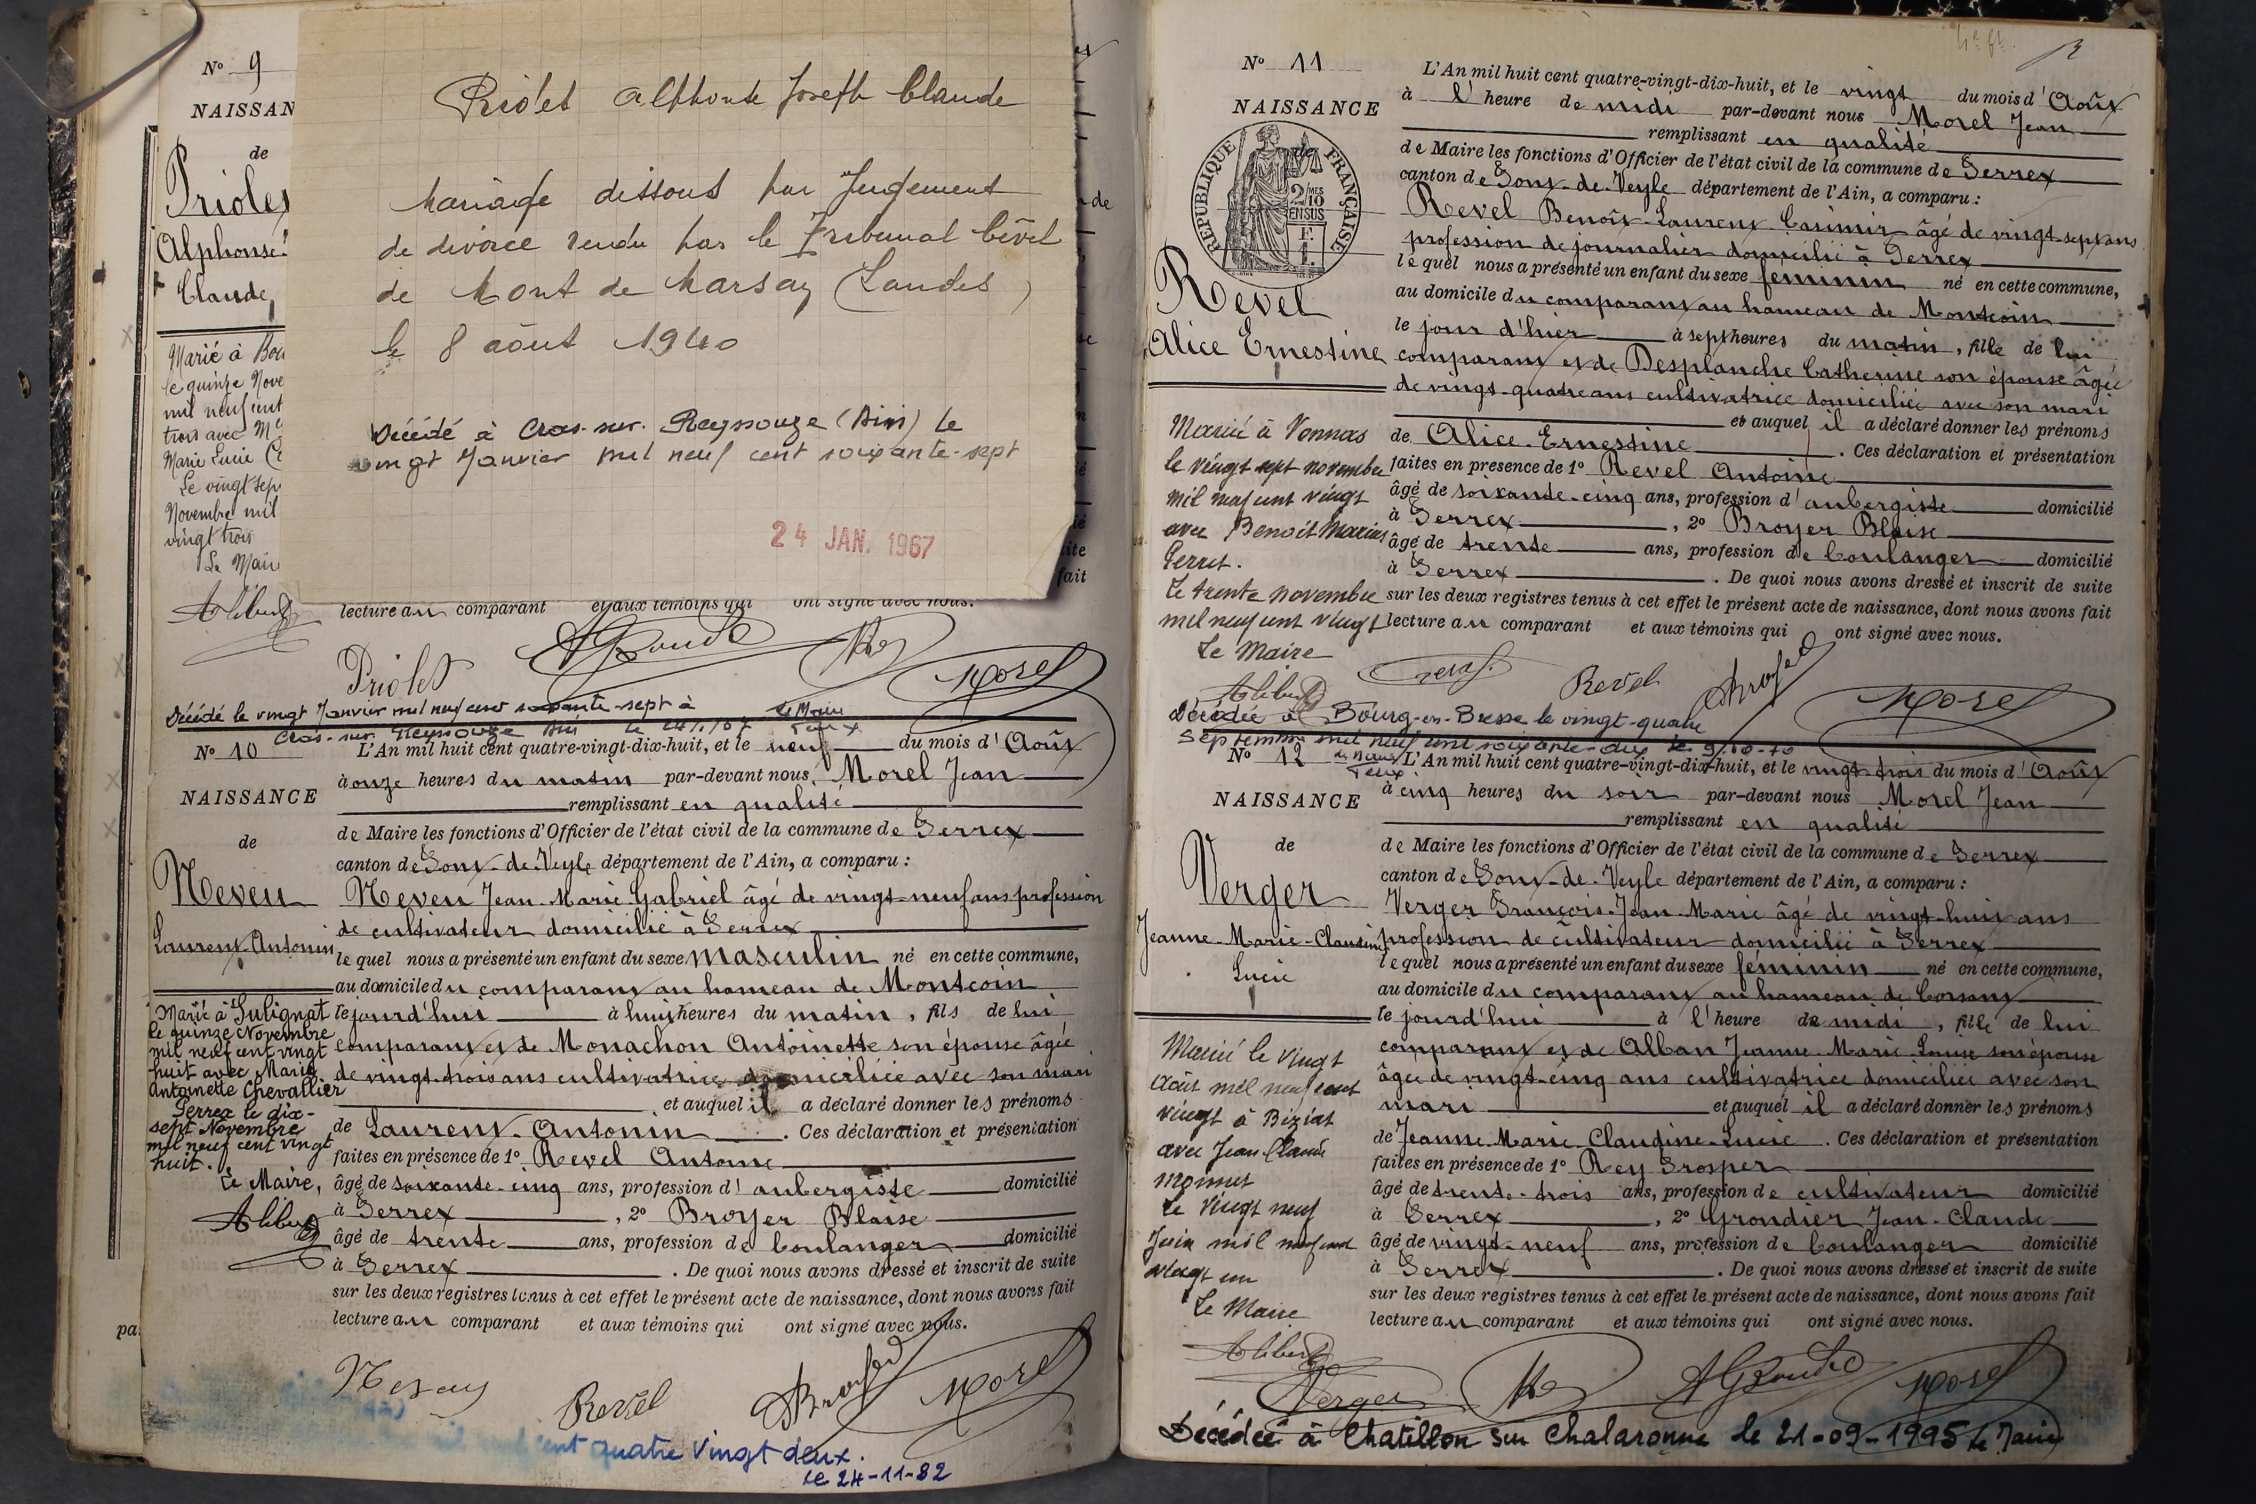 N° 9
NAISSAN
de
Priolet
Alphonse
Claude
Marié à Bou
le quinze Nove
mil neuf cent
trois avec M
Marie Lucie
Le vingt sep
Novembre mil
vingt trois
Le Mair
Priolet Alphonse Joseph Claude
Mariage dissous par Jugement
de divorce rendu par le Tribunal Civil
de Mont de Marsan (Landes)
le 8 août 1940
Décédé à Cras-sur-Reyssouze (Ain) le
vingt Janvier mil neuf cent soixante-sept
24 JAN. 1967
lecture au comparant et aux témoins qui ont signé avec nous.
Priolet
Morel
Décédé le vingt Janvier mil neuf cent soixante-sept à
Cras-sur-Reyssouze Ain le 24/1/67 Le Maire
N° 10
NAISSANCE
de
Neveu
Laurent-Antonin
Marié à Sulignat
le quinze Novembre
mil neuf cent vingt
huit avec Marie
Antoinette Chevallier
Perrex le dix-
sept Novembre
mil neuf cent vingt
huit.
Le Maire,
L'An mil huit cent quatre-vingt-dix-huit, et le neuf du mois d'Août
à onze heures du matin par-devant nous, Morel Jean
remplissant en qualité
de Maire les fonctions d'Officier de l'état civil de la commune de Perrex
canton de Pont-de-Veyle département de l'Ain, a comparu :
Neveu Jean-Marie Gabriel âgé de vingt-neuf ans profession
de cultivateur domicilié à Perrex
lequel nous a présenté un enfant du sexe masculin né en cette commune,
au domicile du comparant au hameau de Montcoin
le jourd'hui à huit heures du matin, fils de lui
comparant et de Monachon Antoinette son épouse âgée
de vingt-trois ans cultivatrice domiciliée avec son mari
et auquel il a déclaré donner les prénoms
de Laurent-Antonin. Ces déclaration et présentation
faites en présence de 1° Revel Antoine
âgé de soixante-cinq ans, profession d'aubergiste domicilié
à Perrex, 2° Broyer Blaise
âgé de trente ans, profession de boulanger domicilié
à Perrex. De quoi nous avons dressé et inscrit de suite
sur les deux registres tenus à cet effet le présent acte de naissance, dont nous avons fait
lecture au comparant et aux témoins qui ont signé avec nous.
Revel
Morel
cent quatre vingt deux.
Le 24-11-82
N° 11
NAISSANCE
de
RÉPUBLIQUE FRANÇAISE
2/10
MES
EN SUS
F.
1.
Revel
Alice Ernestine
Marié à Vonnas
le vingt sept novembre
mil neuf cent vingt
avec Benoit Marius
Perret.
Le trente novembre
mil neuf cent vingt
Le Maire
L'An mil huit cent quatre-vingt-dix-huit, et le vingt du mois d'Août
à l'heure de midi par-devant nous Morel Jean
remplissant en qualité
de Maire les fonctions d'Officier de l'état civil de la commune de Perrex
canton de Pont-de-Veyle département de l'Ain, a comparu :
Revel Benoît-Laurent Casimir âgé de vingt-sept ans
profession de journalier domicilié à Perrex
lequel nous a présenté un enfant du sexe féminin né en cette commune,
au domicile du comparant au hameau de Montcoin
le jour d'hier à sept heures du matin, fille de lui
comparant et de Desplanche Catherine son épouse âgée
de vingt-quatre ans cultivatrice domiciliée avec son mari
et auquel il a déclaré donner les prénoms
de Alice-Ernestine. Ces déclaration et présentation
faites en présence de 1° Revel Antoine
âgé de soixante-cinq ans, profession d'aubergiste domicilié
à Perrex, 2° Broyer Blaise
âgé de trente ans, profession de boulanger domicilié
à Perrex. De quoi nous avons dressé et inscrit de suite
sur les deux registres tenus à cet effet le présent acte de naissance, dont nous avons fait
lecture au comparant et aux témoins qui ont signé avec nous.
Revel
Morel
Décédée à Bourg-en-Bresse le vingt-quatre
Septembre mil neuf cent soixante-dix le 9-10-70
N° 12
NAISSANCE
de
Verger
Jeanne-Marie-Claudine
Lucie
Marié le vingt
Août mil neuf cent
vingt à Biziat
avec Jean Claude
Monnet
Le vingt neuf
Juin mil neuf cent
vingt un
Le Maire
L'An mil huit cent quatre-vingt-dix-huit, et le vingt-trois du mois d'Août
à cinq heures du soir par-devant nous Morel Jean
remplissant en qualité
de Maire les fonctions d'Officier de l'état civil de la commune de Perrex
canton de Pont-de-Veyle département de l'Ain, a comparu :
Verger François-Jean-Marie âgé de vingt-huit ans
profession de cultivateur domicilié à Perrex
lequel nous a présenté un enfant du sexe féminin né en cette commune,
au domicile du comparant au hameau de Corsant
le jourd'hui à l'heure de midi, fille de lui
comparant et de Alban Jeanne-Marie-Louise son épouse
âgée de vingt-cinq ans cultivatrice domiciliée avec son
mari et auquel il a déclaré donner les prénoms
de Jeanne-Marie-Claudine-Lucie. Ces déclaration et présentation
faites en présence de 1° Rey Prosper
âgé de trente-trois ans, profession de cultivateur domicilié
à Perrex, 2° Grondier Jean-Claude
âgé de vingt-neuf ans, profession de boulanger domicilié
à Perrex. De quoi nous avons dressé et inscrit de suite
sur les deux registres tenus à cet effet le présent acte de naissance, dont nous avons fait
lecture au comparant et aux témoins qui ont signé avec nous.
Verger
Morel
Décédée à Chatillon sur Chalaronne le 21-09-1995 le Maire